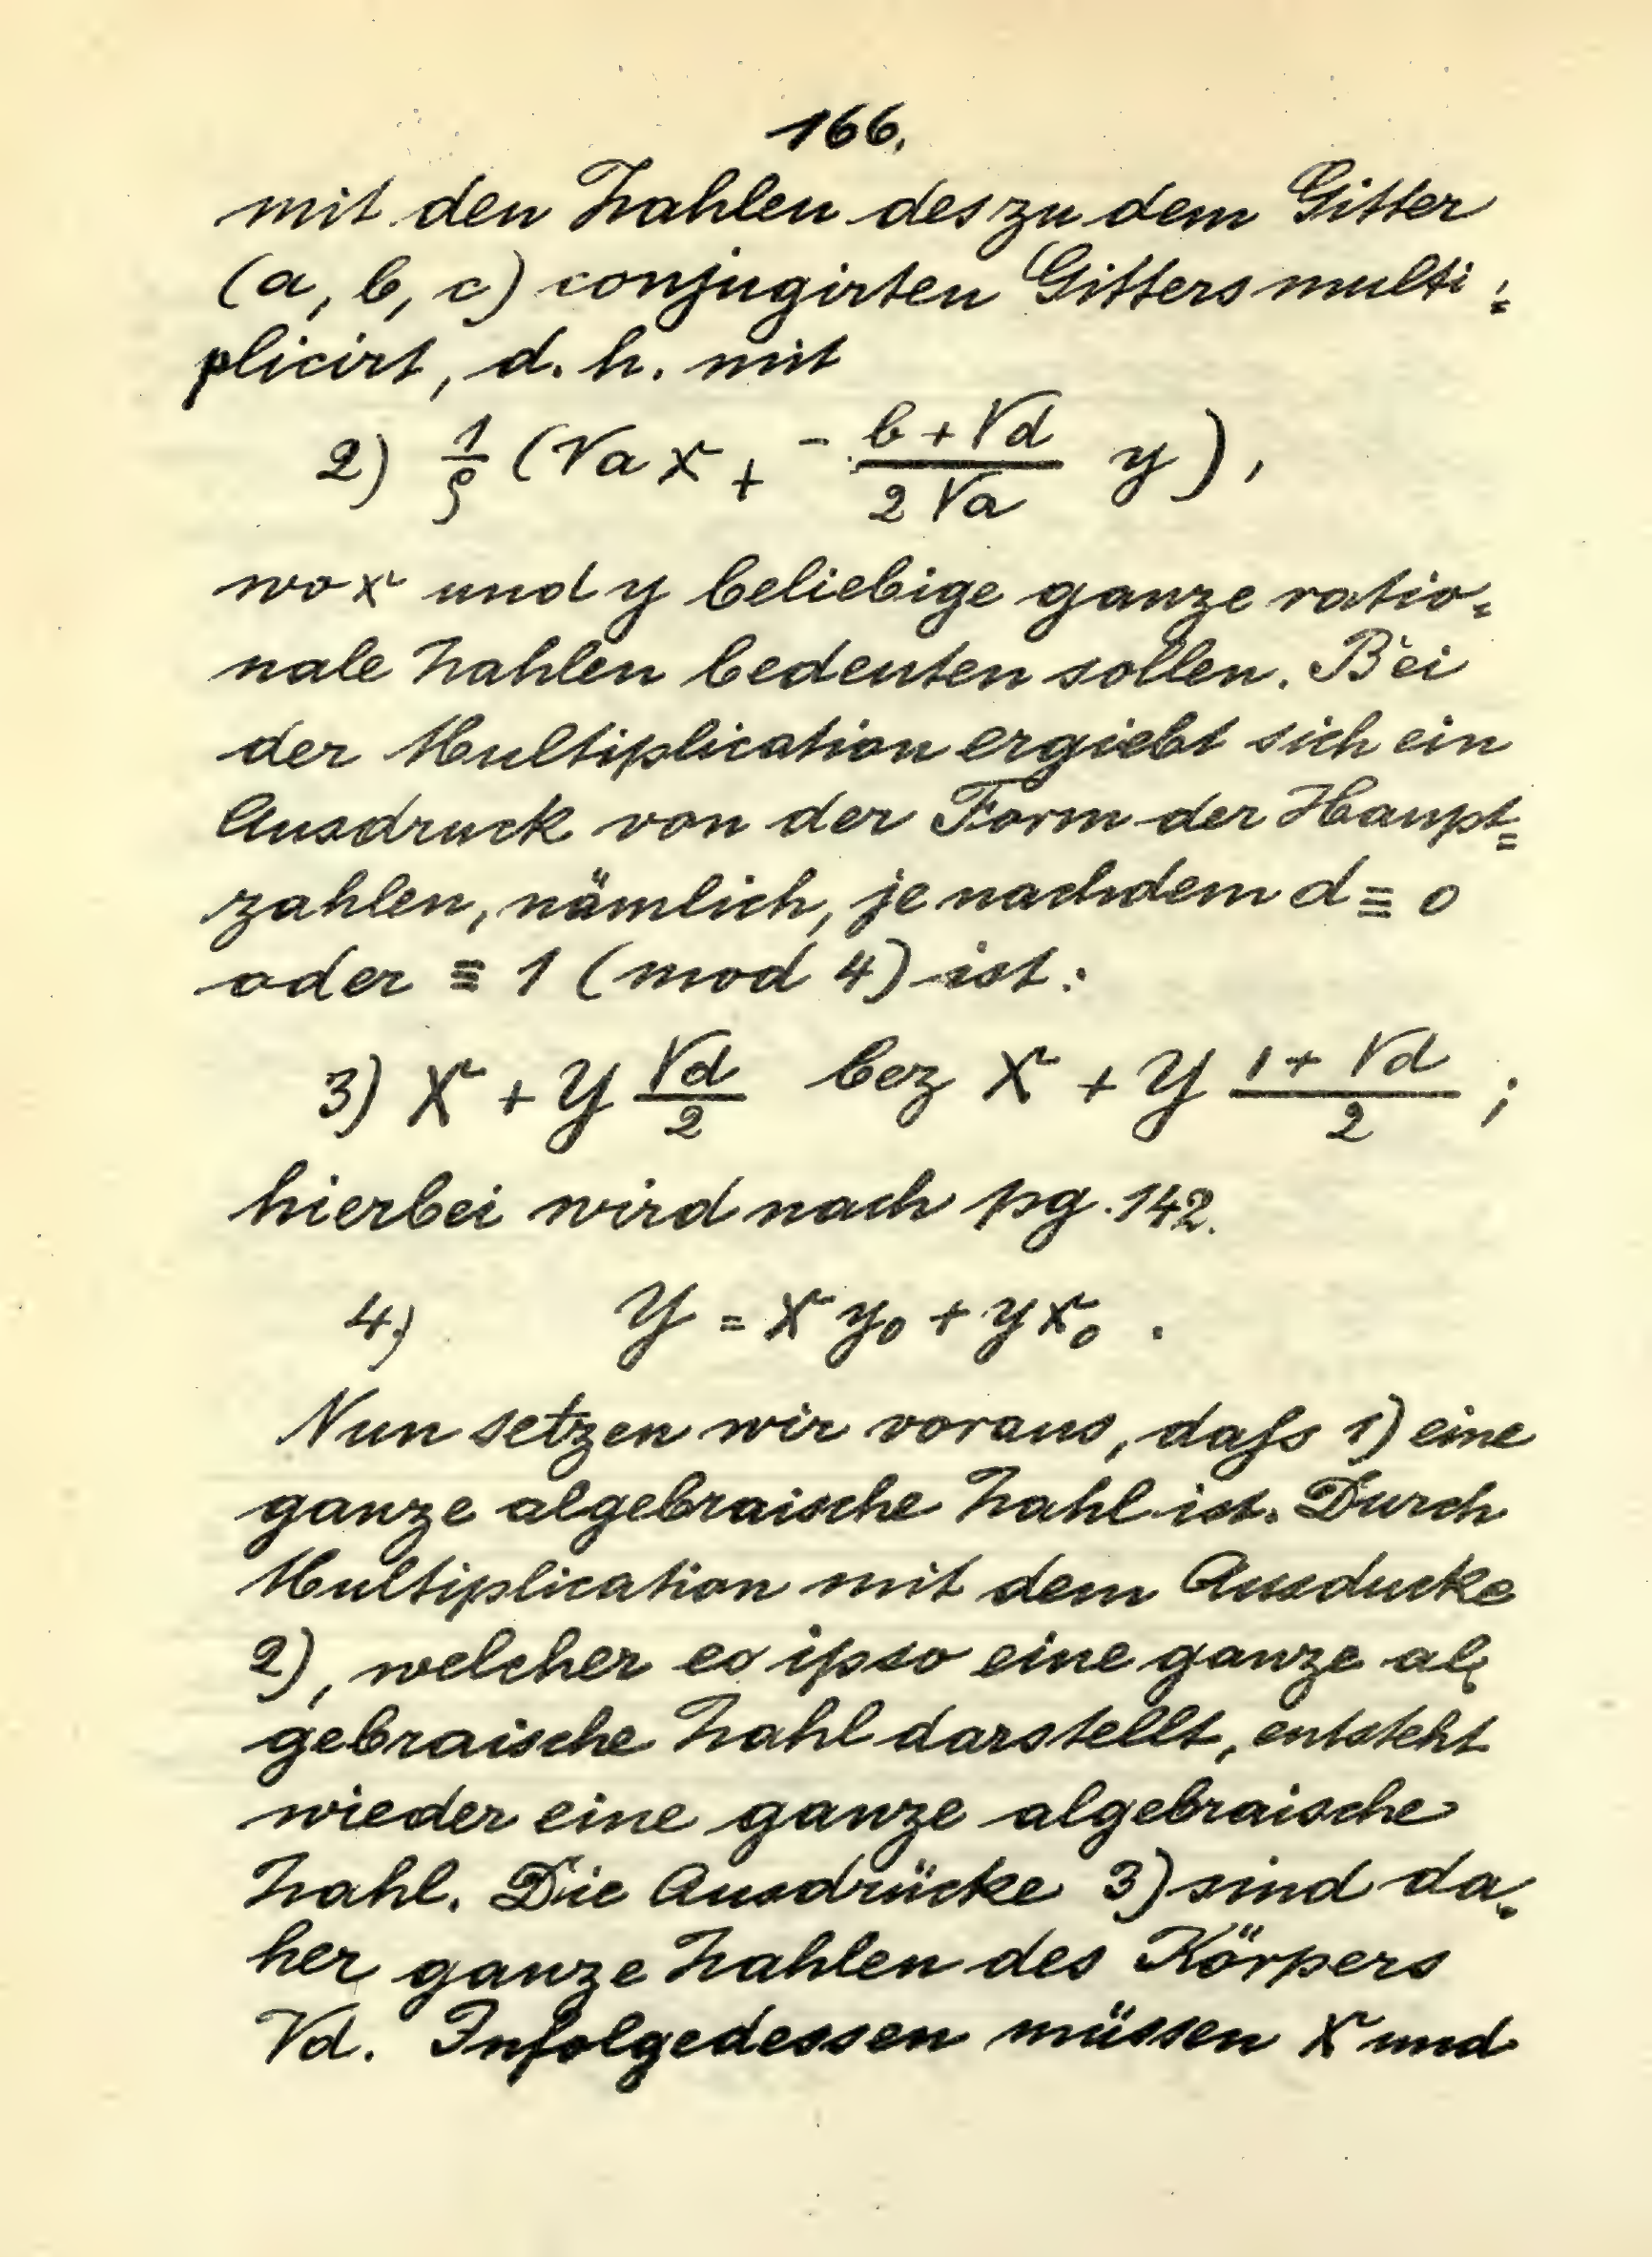 166.
mit den Zahlen des zu dem Gitter
(a, b, c) conjugirten Gitters multi=
plicirt, d. h. mit
2) 1/ρ (√a x + -b+√d / 2√a y),
wo x und y beliebige ganze ratio=
nale Zahlen bedeuten sollen. Bei
der Multiplication ergiebt sich ein
Ausdruck von der Form der Haupt=
zahlen, nämlich, je nachdem d ≡ 0
oder ≡ 1 (mod 4) ist:
3) X + Y √d/2 bez X + Y 1+√d / 2 ;
hierbei wird nach pg. 142.
4) Y = x y₀ + y x₀ .
Nun setzen wir voraus, daſs 1) eine
ganze algebraische Zahl ist. Durch
Multiplication mit dem Ausducke
2), welcher eo ipso eine ganze al=
gebraische Zahl darstellt, entsteht
wieder eine ganze algebraische
Zahl. Die Ausdrücke 3) sind da=
her ganze Zahlen des Körpers
√d. Infolgedessen müssen X und